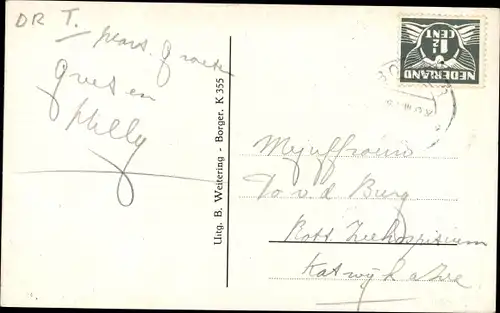 DR T.
hart. groet
Greet en
Willy
Uitg. B. Weitering - Borger. K 355
NEDERLAND
1½
CENT
Mejuffrouw
To v. d. Burg
Rott. Zeehospitium
Katwijk a Zee